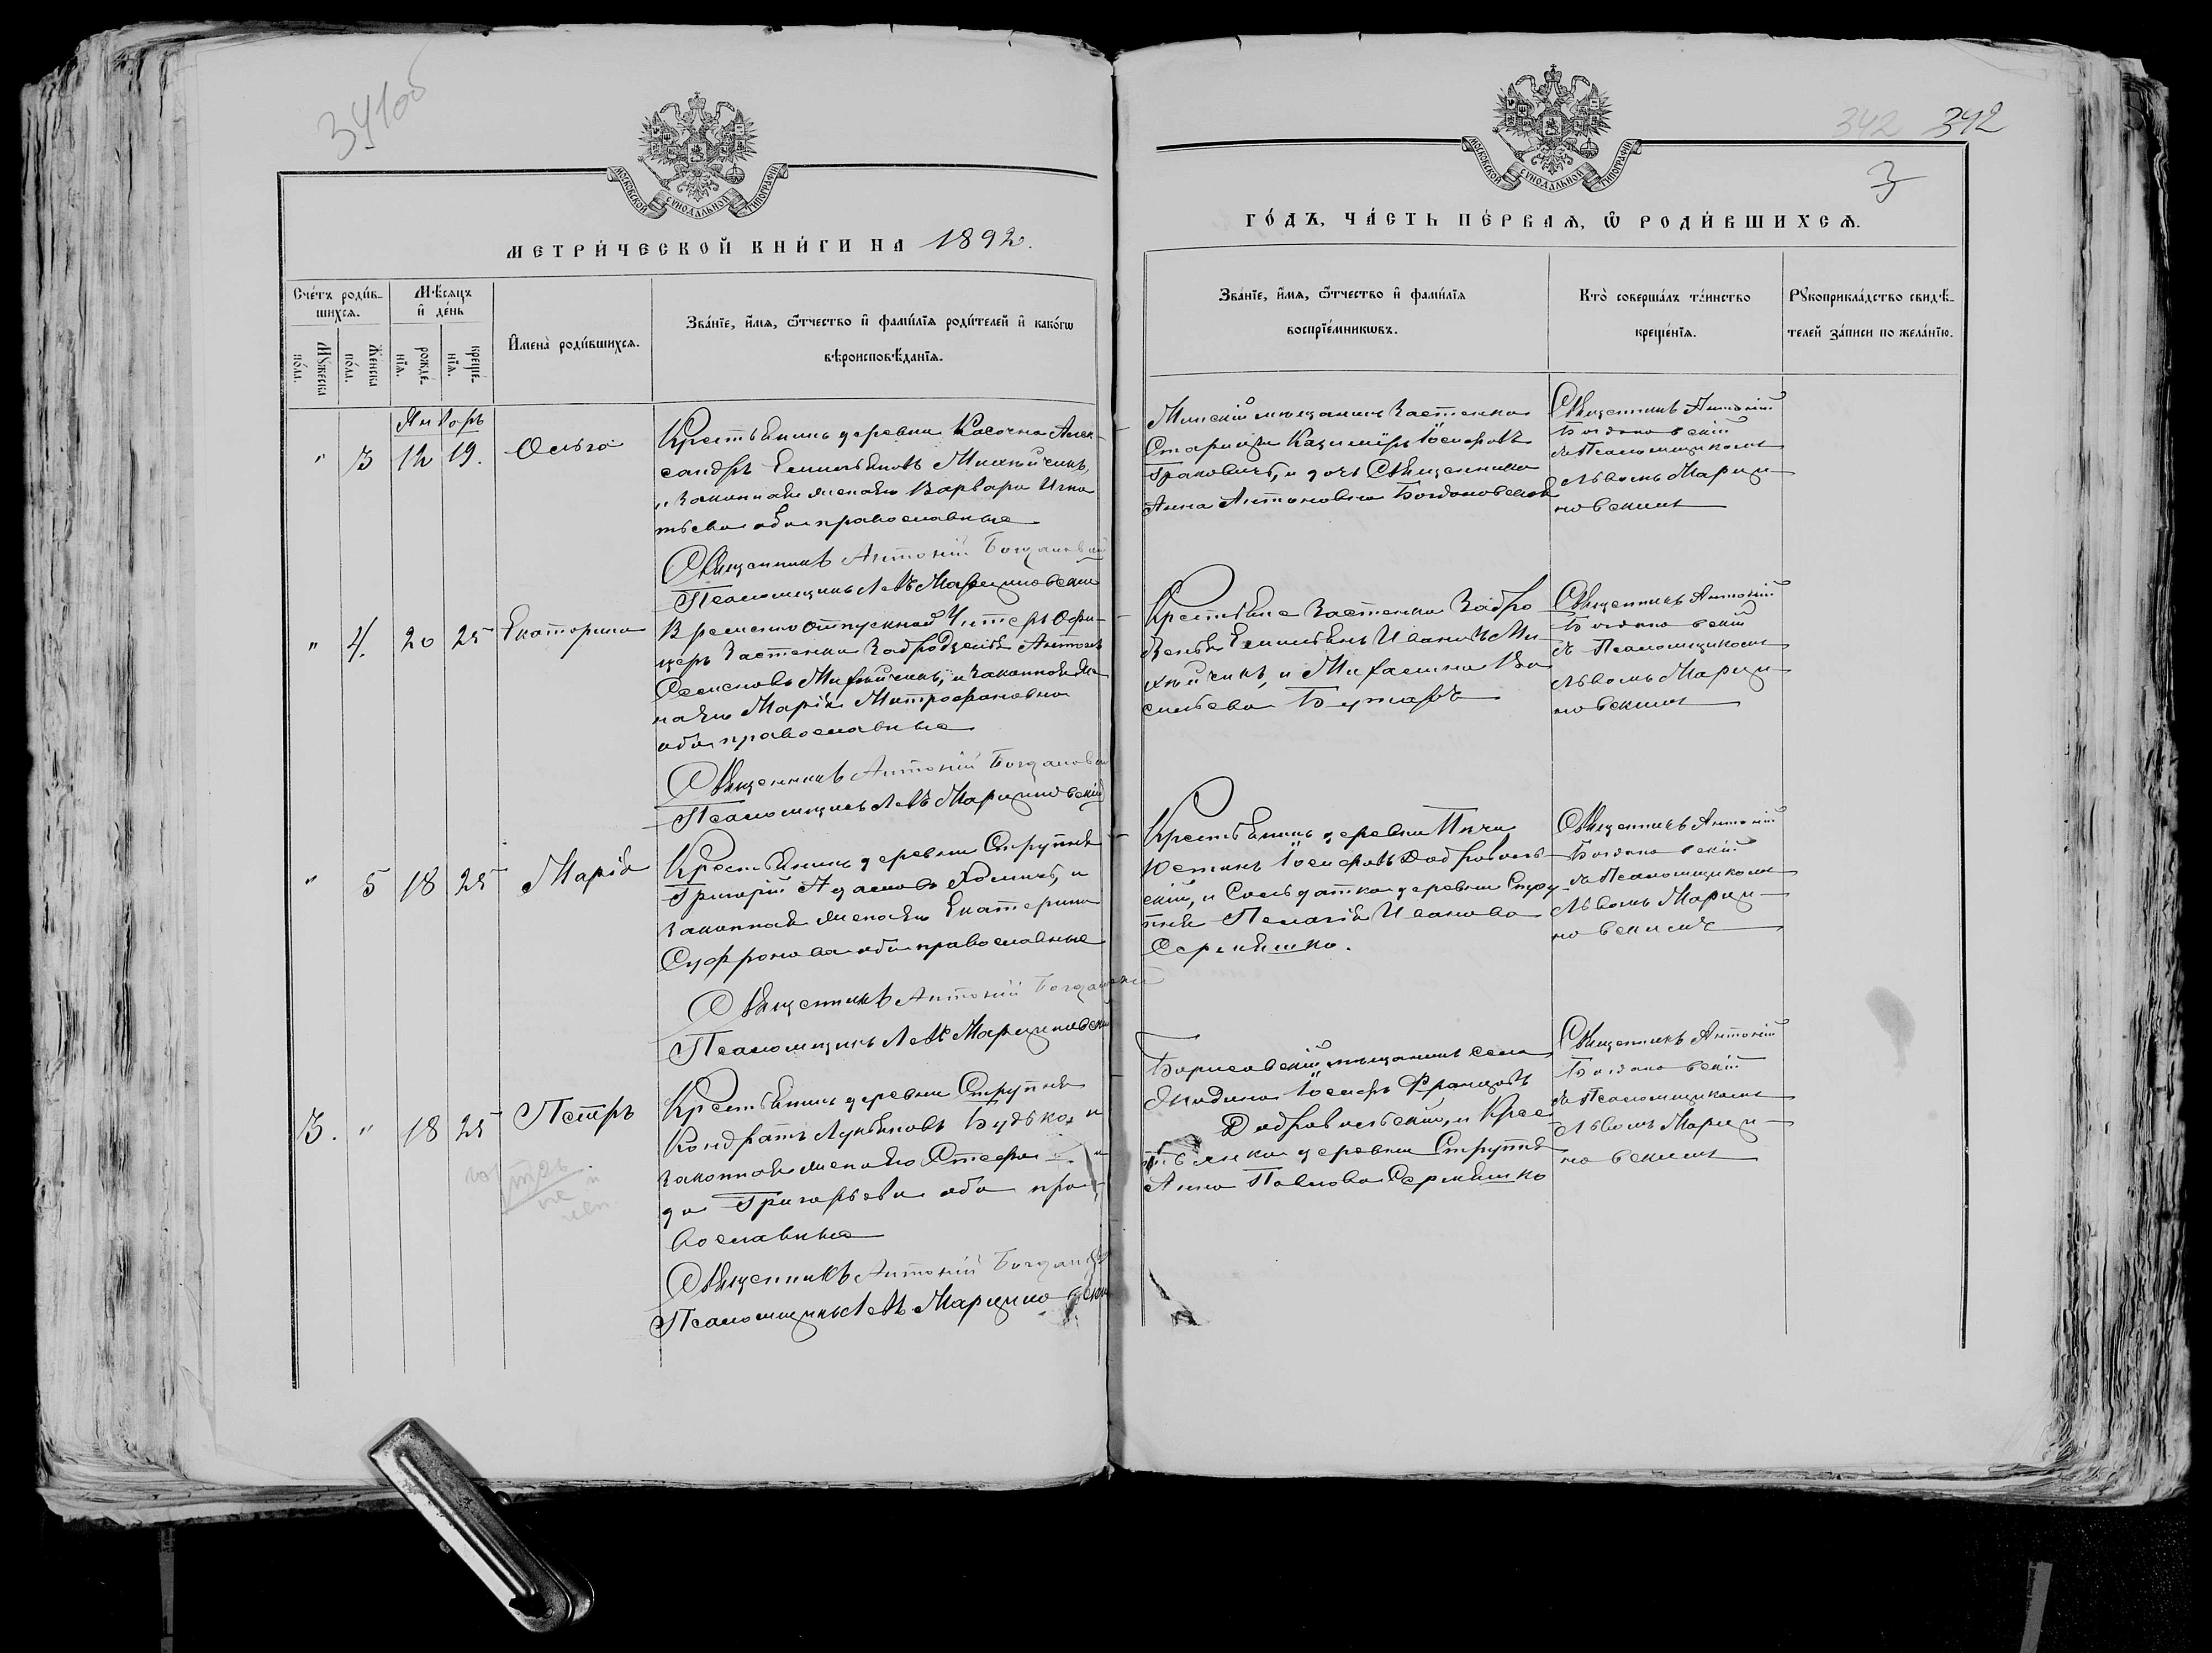 341об
МОСКОВСКОЙ СУНОДАЛЬНОЙ ТИПОГРАФІИ
МЕТРИ́ЧЕСКОЙ КНИ́ГИ НА 1892.
Сче́тъ роди́в-
шихся.
Мѣсяцъ
и҆ де́нь
Мꙋ́жеска
по́ла.
Же́нска
по́ла.
рожде́-
нїя.
креще́-
нїя.
И҆мена̀ роди́вшихся.
Зва́нїе, и҆́мя, ѻ҆́тчество и҆ фами́лїя роди́телей и҆ како́гѡ
вѣроисповѣ́данїя.
Январь
" 3 12 19. Ольга
Крестьянинъ деревни Касачка Алек-
сандръ Емильяновъ Михнійчикъ,
и законная жена его Варвара Игна
тьева оба православные
Священникъ Антоній Богдановскій
Псаломщикъ Левъ Марциновскій
" 4. 20 25 Екатерина
Временно отпускной Унтеръ Офи-
церъ Застенка Забродзелья Антонъ
Осиповъ Михнійчикъ, и законная же
на его Марія Митрофановна
оба православные
Священникъ Антоній Богдановскій
Псаломщикъ Левъ Марциновскій
" 5 18 25 Марія
Крестьянинъ деревни Струпня
Григорій Адамовъ Хомичъ, и
законная жена его Екатерина
Суфронова оба православные
Священникъ Антоній Богдановскій
Псаломщикъ Левъ Марциновскій
3. " 18 25 Петръ
Крестьянинъ деревни Струпня
Кондратъ Лукьяновъ Будько, и
законная жена его Стефани
да Григорьева оба пра-
вославные
Священникъ Антоній Богдановскій
Псаломщикъ Левъ Марциновскій
342 342
3
МОСКОВСКОЙ СУНОДАЛЬНОЙ ТИПОГРАФІИ
ГО́ДЪ, ЧА́СТЬ ПЕ́РВАЯ, Ѽ РОДИ́ВШИХСЯ.
Зва́нїе, и҆́мя, ѻ҆́тчество и҆ фами́лїя
воспрїе́мникѡвъ.
Кто̀ соверша́лъ та́инство
креще́нїя.
Рꙋкоприкла́дство свидѣ́-
телей за́писи по жела́нїю.
Минскій мещанинъ Застенка
Старицы Казиміръ Іосифовъ
Гракович, и дочь Священника
Анна Антоновна Богдановская
Священникъ Антоній
Богдановскій
съ Псаломщикомъ
Львомъ Марци-
новскимъ
Крестьяне Застенка Забро
дзелья Емильянъ Ивановъ Ми-
хнійчикъ, и Михалина Ва
сильева Бумаръ
Священникъ Антоній
Богдановскій
съ Псаломщикомъ
Львомъ Марци-
новскимъ
Крестьянинъ деревни Пичи
Юстинъ Іосифовъ Добровол-
скій, и Солдатка деревни Стру-
пня Пелагія Иванова
Сермяшко.
Священникъ Антоній
Богдановскій
съ Псаломщикомъ
Львомъ Марци-
новскимъ
Борисовскій мещанинъ села
Юдино Іосифъ Францовъ
Добровольскій, и Крес-
тьянка деревни Струпня
Анна Павлова Сермяшко
Священникъ Антоній
Богдановскій
съ Псаломщикомъ
Львомъ Марци-
новскимъ